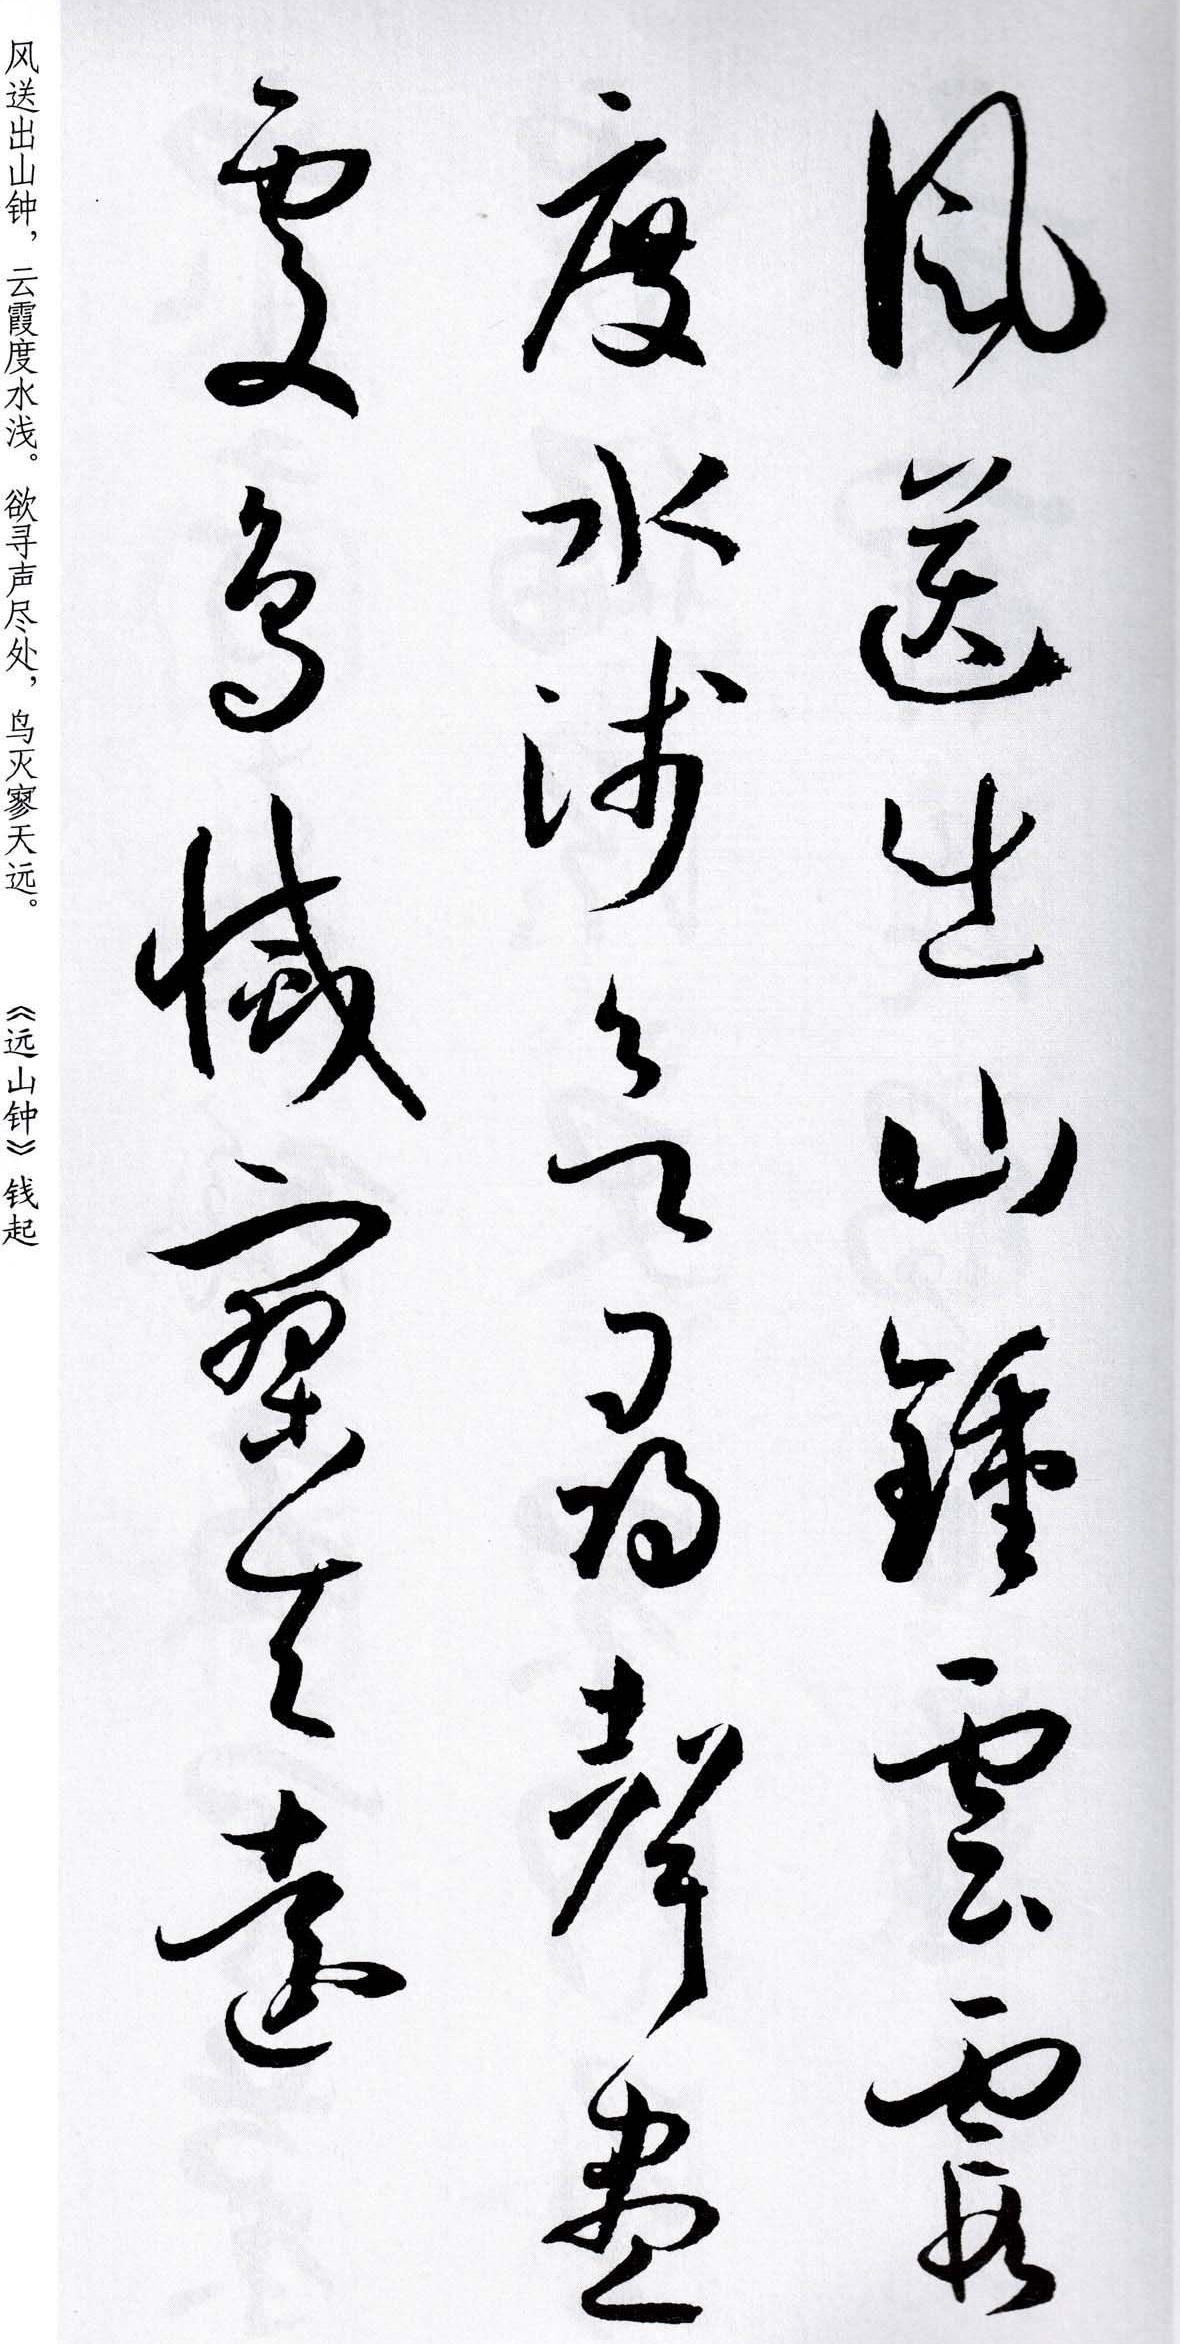 風送出山鍾雲霞
度水淺欲尋聲盡
處鳥滅寥天遠
风送出山钟，云霞度水浅。欲寻声尽处，鸟灭寥天远。 《远山钟》钱起